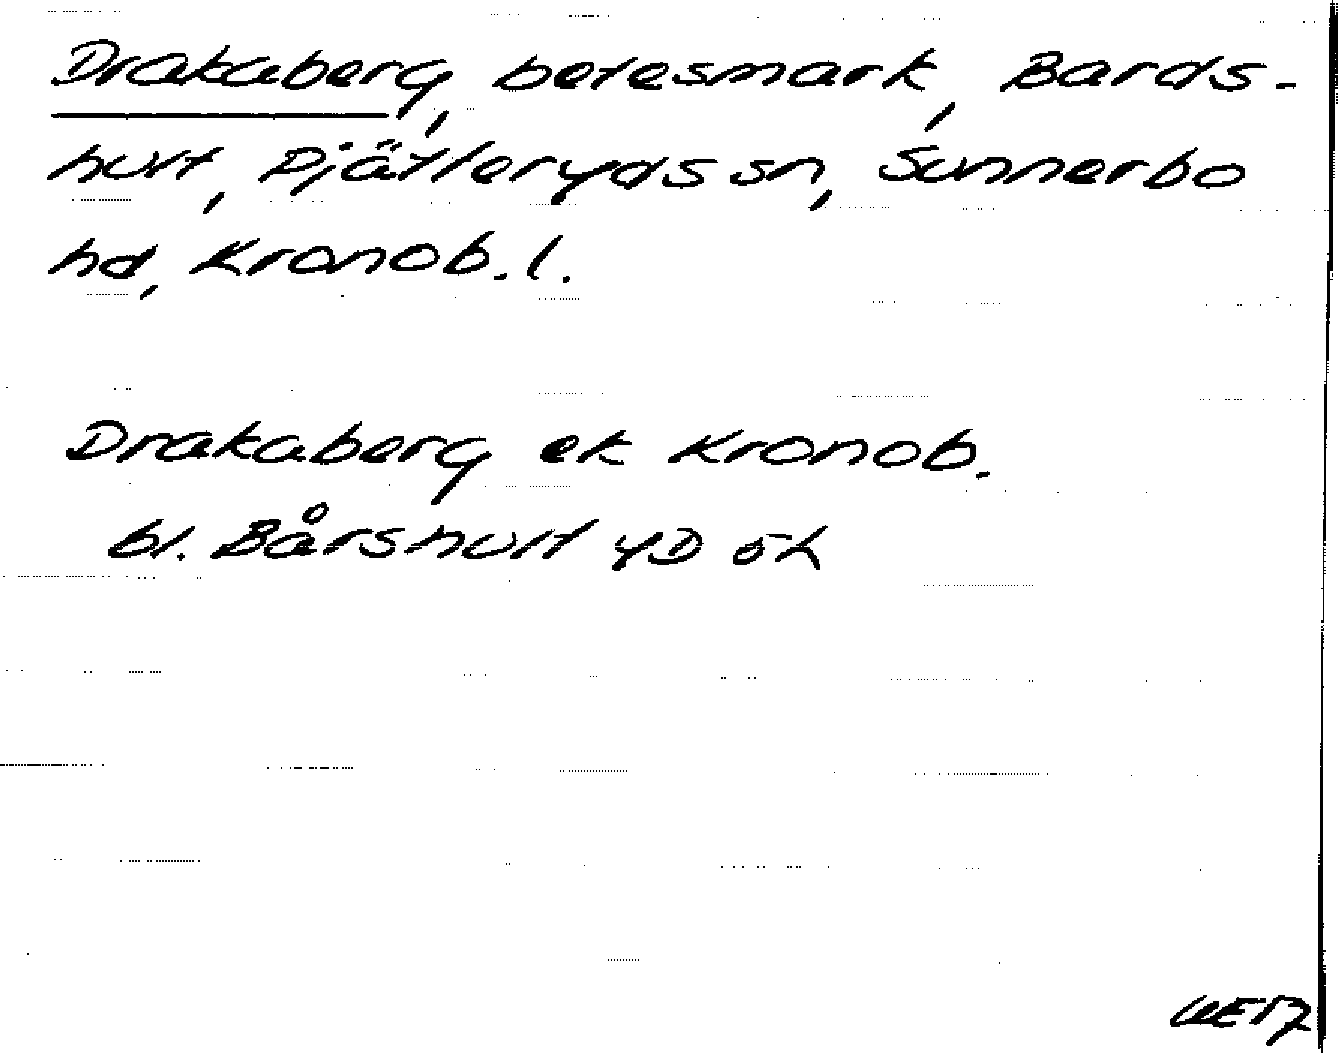 Drakaberg, betesmark, Bards-
hult, Pjätteryds sn, Sunnerbo
hd, Kronob. l.
Drakaberg ek Kronob.
bl. Bårshult 4D öh